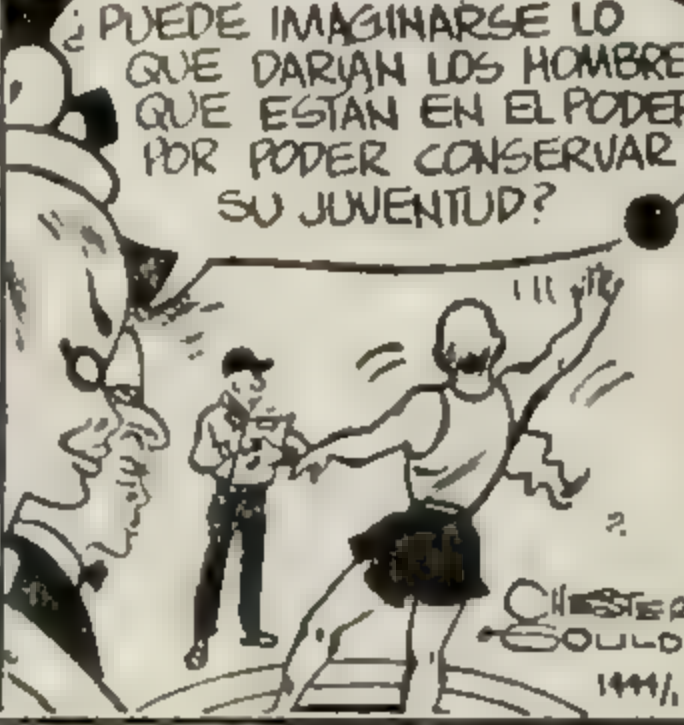 ¿PUEDE IMAGINARSE LO
QUE DARIAN LOS HOMBRE
QUE ESTAN EN EL PODER
POR PODER CONSERVAR
SU JUVENTUD?
CHESTER
GOULD